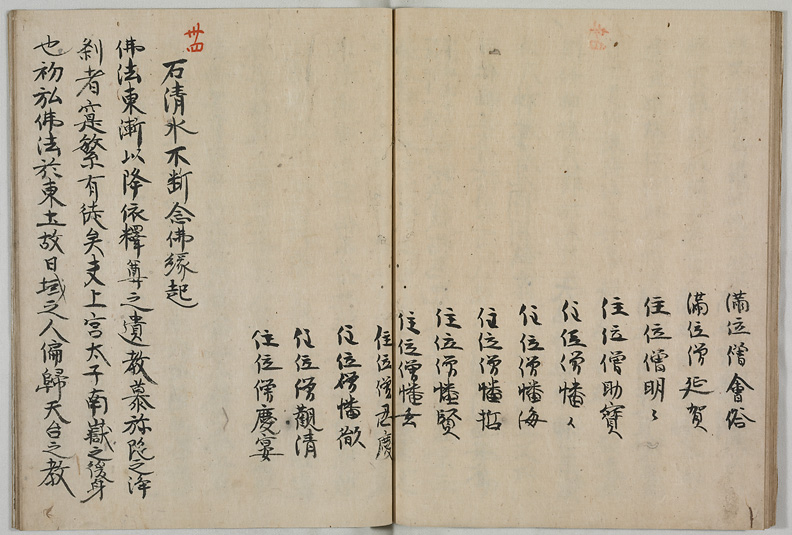 滿位僧會俗
滿位僧延賀
住位僧明〻
住位僧助寶
住位僧幡〻
住位僧幡海
住位僧幡哲
住位僧幡賢
住位僧幡玄
住位僧忍慶
住位僧幡
住位僧觀清
住位僧慶宴
卅四
石清水不斷念佛緣起
佛法東漸以降依釋尊之遺教慕之
刹者寔繁有徒矣夫上宮太子南嶽之後身
也初弘佛法於東土故日域之人偏歸天台之教